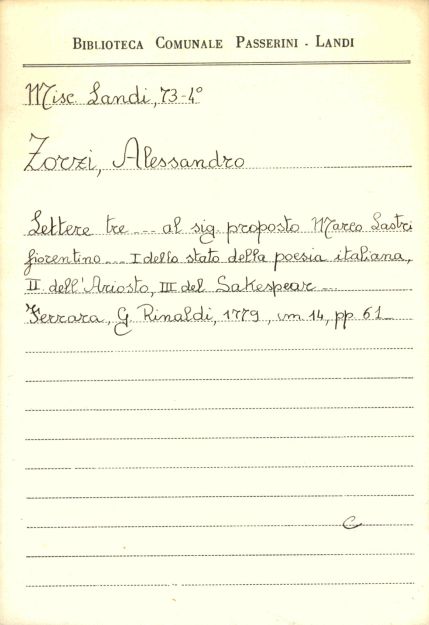 BIBLIOTECA COMUNALE PASSERINI - LANDI
Misc. Landi, 73-4°
Zorzi, Alessandro
Lettere tre --- al sig. proposto Marco Lastri
fiorentino --- I dello stato della poesia italiana,
II dell'Ariosto, III del Sakespear ---
Ferrara, G. Rinaldi, 1779, in 14, pp. 61_
C